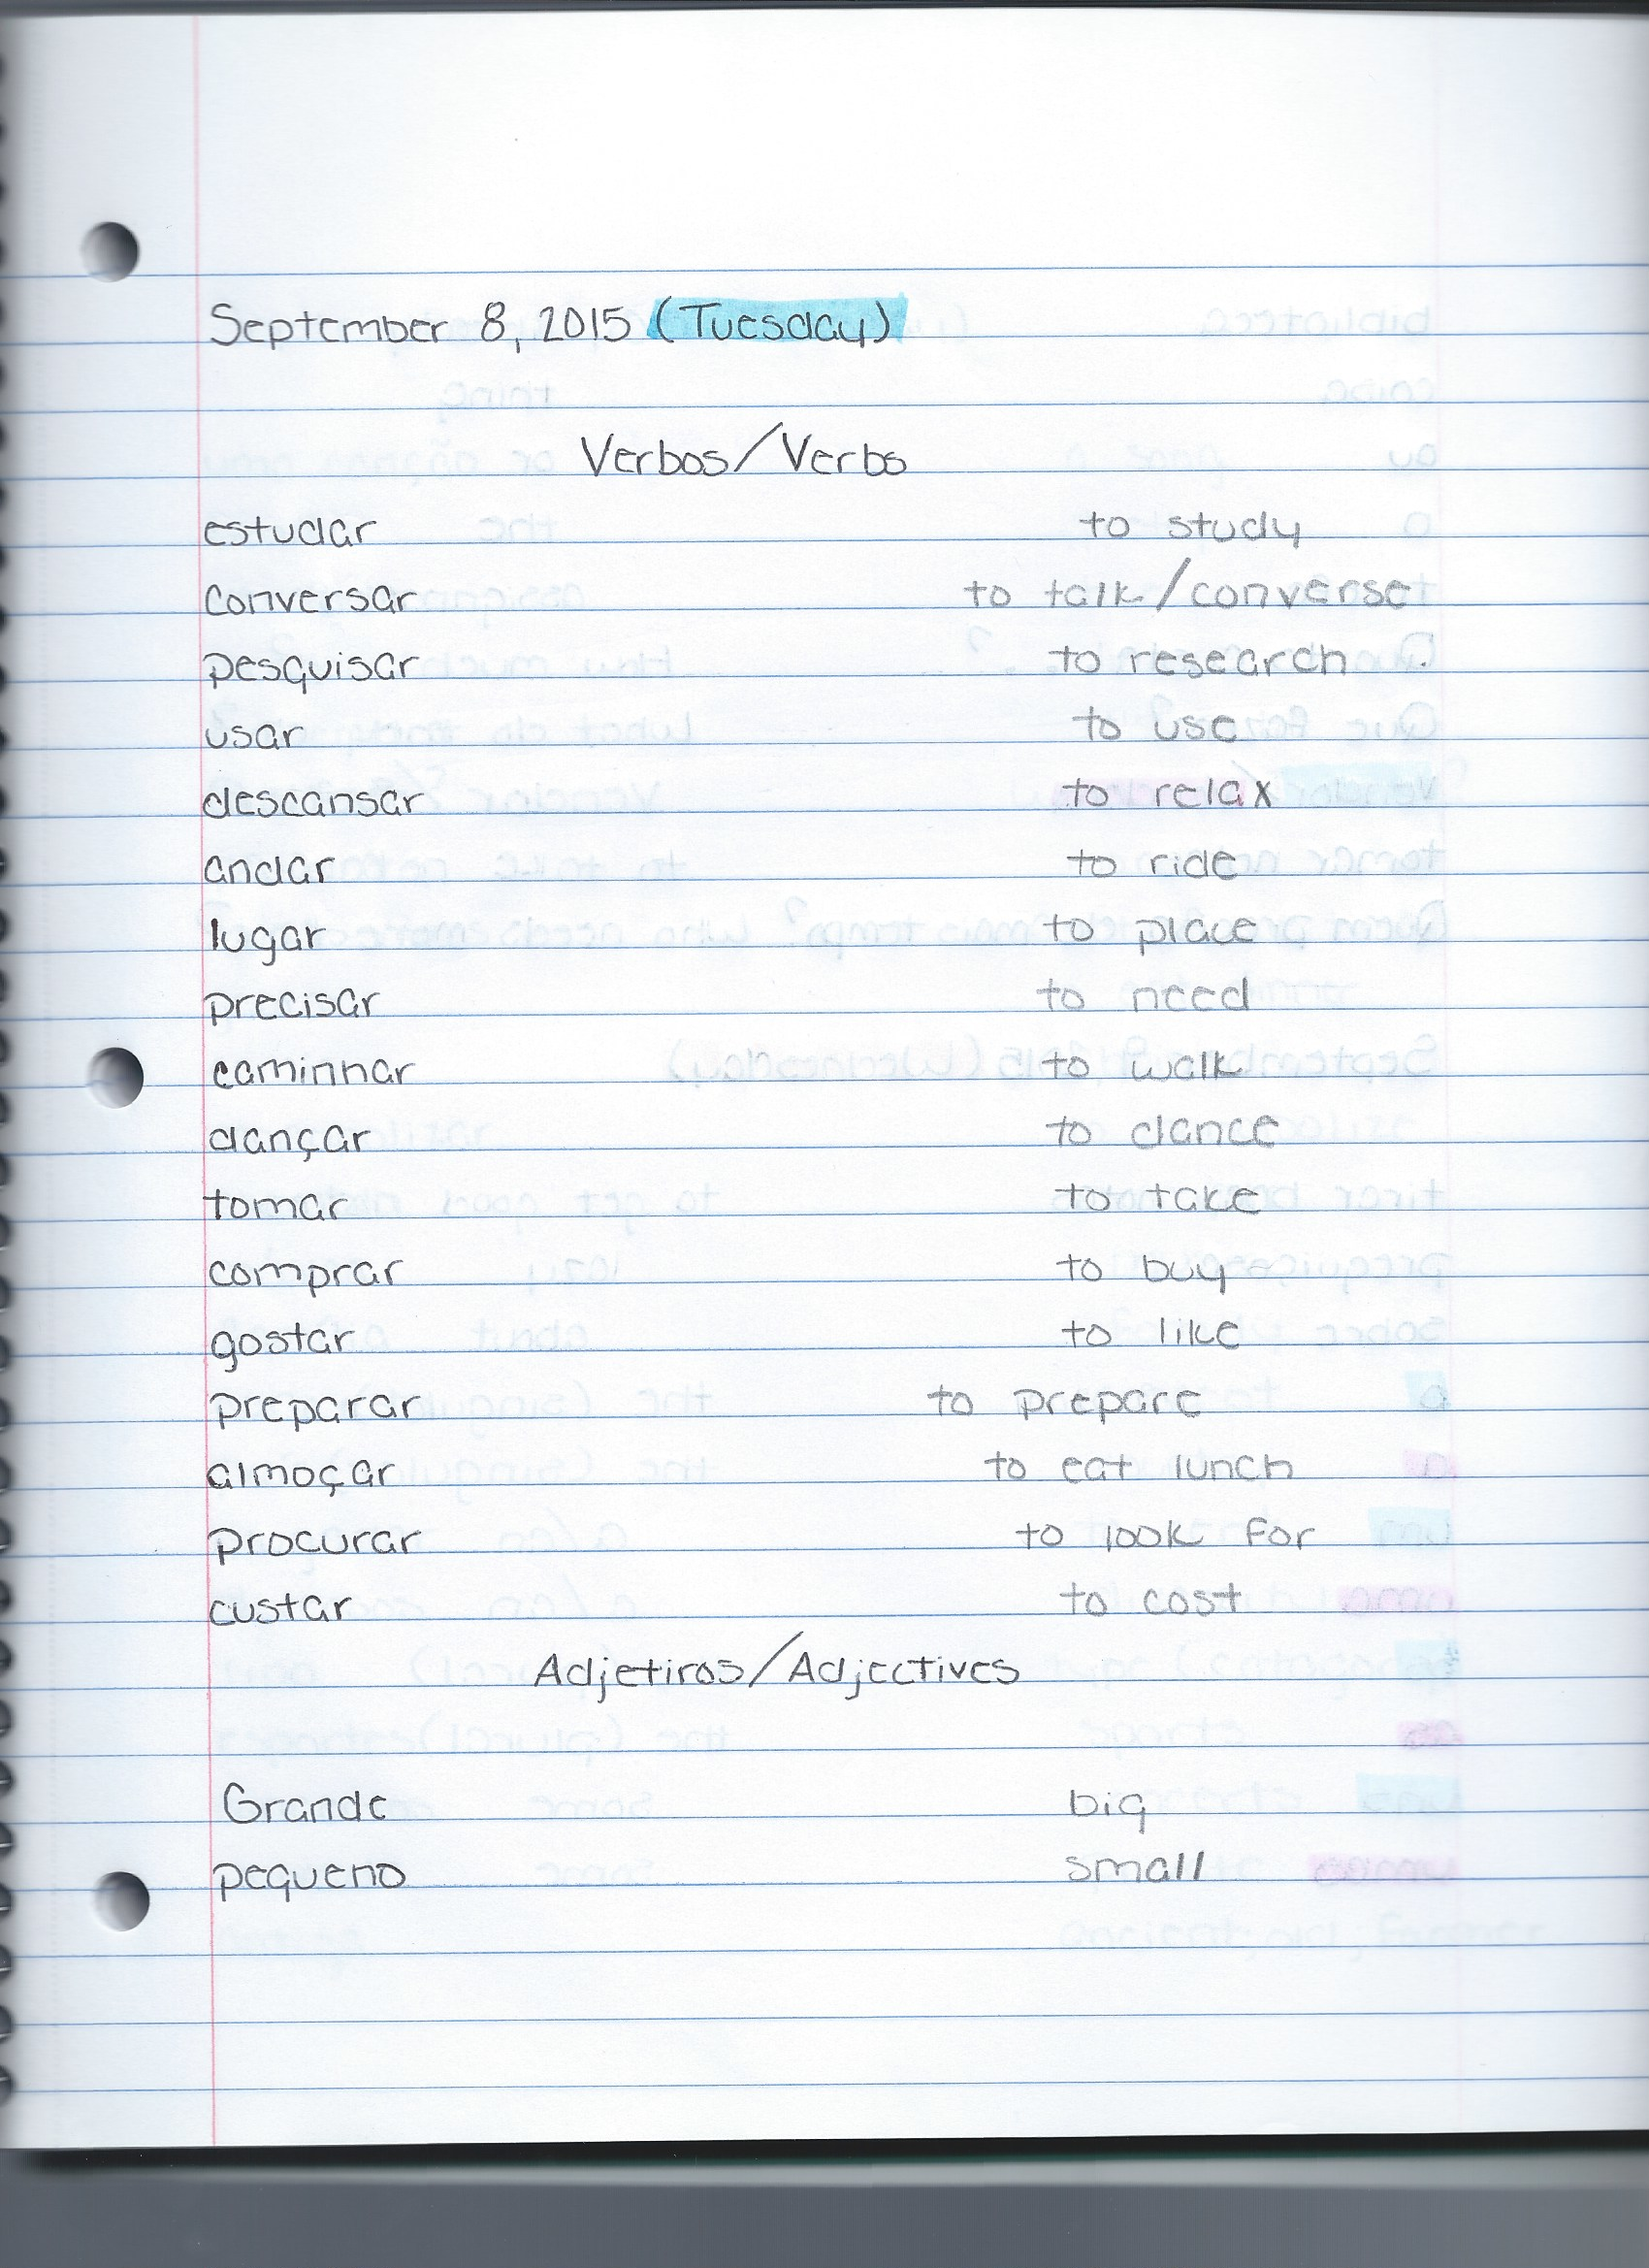 September 8, 2015 (Tuesday)
Verbos/Verbs
estudar to study
conversar to talk/converse
pesquisar to research
usar to use
descansar to relax
andar to ride
lugar to place
precisar to need
caminhar to walk
dançar to dance
tomar to take
comprar to buy
gostar to like
preparar to prepare
almoçar to eat lunch
procurar to look for
custar to cost
Adjetiros/Adjectives
Grande big
pequeno small